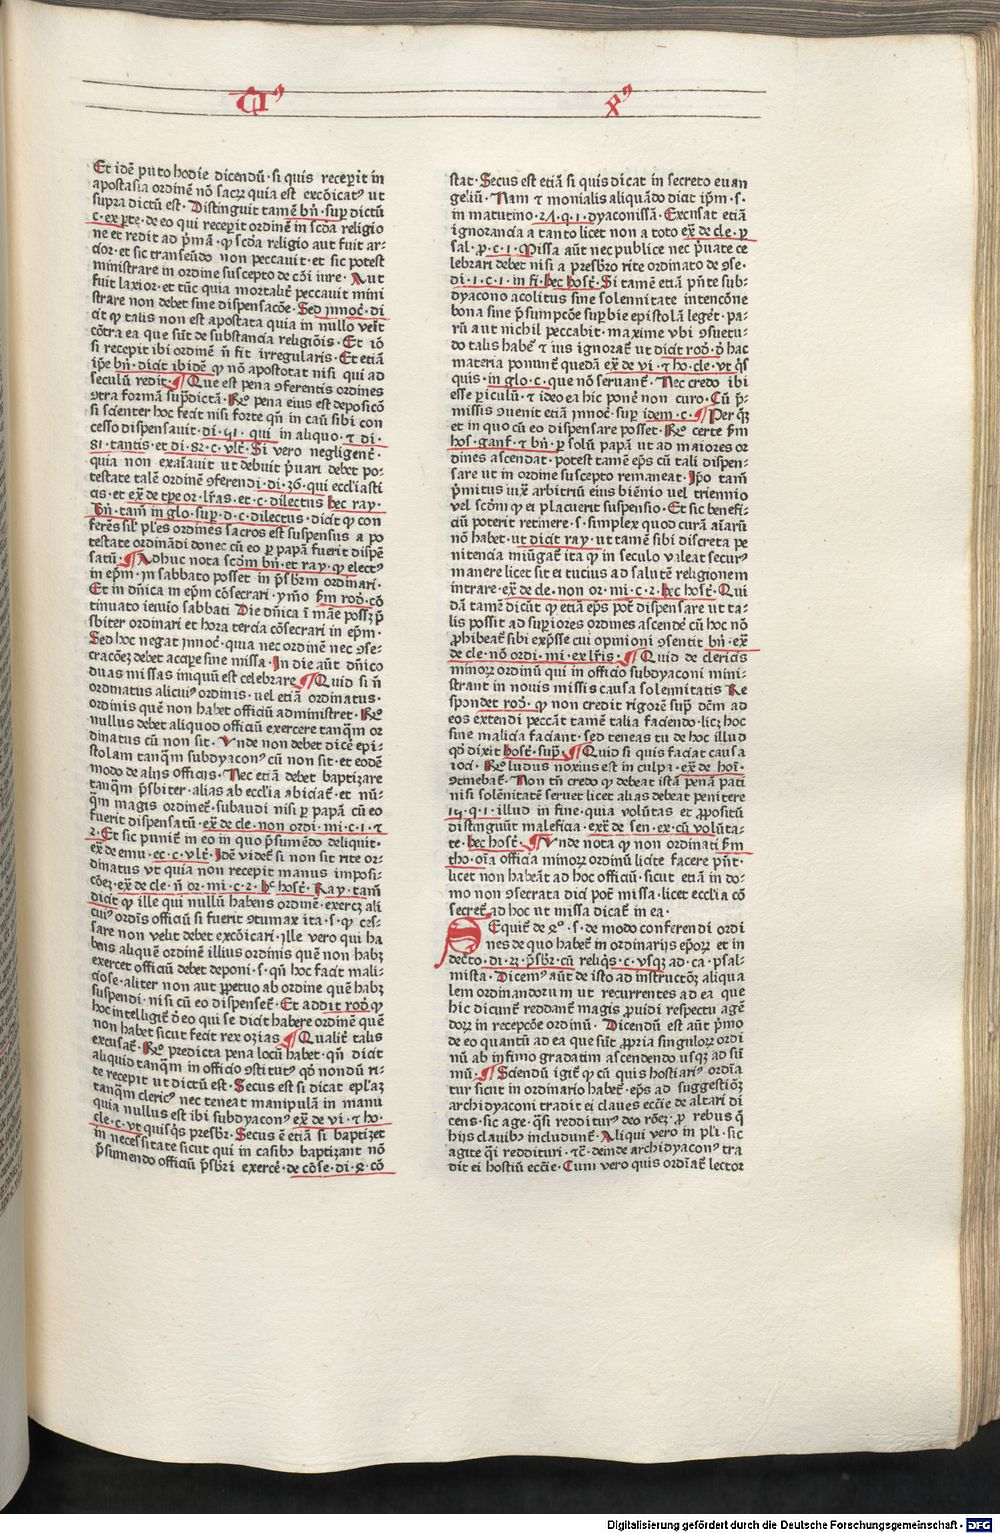 Et idē puto hodie dicendū · si quis receperit in
apostasia ordinē nō sacrꝝ quia est excōicatꝰ ut
supra dictū est · Distinguit tamē bn̄ · suꝑ dictū
c · ex ꝑte · de eo qui receperit ordinē in scd̄a religio
ne et redit ad p̄mā · ꝙ scd̄a religio aut fuit ar-
ctior · et sic transeūdo non peccauit · et sic potest
ministrare in ordine suscepto de cōi iure · Aut
fuit laxior · et tūc quia mortalit̄ peccauit mini
strare non debet sine dispensacōe · Sed īnnoc̄ · di
cit ꝙ talis non est apostata quia in nullo venit
cōtra ea que sūt de substancia religiōis · Et iō
si recepit ibi ordinē n̄ fit irregularis · Et etiā
ip̄e bn̄ · dicit ibidē ꝙ nō apostotat nisi qui ad
seculū redit · ¶ Que est pena ꝯferentis ordines
ꝯtra formā sup̄dictā · Rō pena eius est deposicō
si scienter hoc fecit nisi forte qn̄ in cau sibi con
cesso dispensauit · di · 51 · qui in aliquo · ⁊ di ·
81 · tantis · et di · 82 · c · vlt̄ · Si vero negligent̄ ·
quia non exaīauit ut debuit p̄uari debet po-
testate talē ordinē ꝯferendi · di · 36 · qui eccl̄iasti
cis · et ex̄ de tp̄e or · lr̄as · et · c · dilectus hec ray ·
bn̄ · tam̄ in glo · suꝑ · d · c · dilectus · dicit ꝙ con
ferēs sil̓ pl̓es ordines sacros est suspensus a po
testate ordināndi donec cū eo ꝑ papā fuerit dispē
satū · ¶ Adhuc nota scd̄m bn̄ · et ray · ꝙ electꝰ
in ep̄m · in sabbato posset in p̄sbr̄m ordinari ·
Et in dn̄ica in ep̄m cōsecrari · ymo s̄m rod̄ · cō
tinuato ieiuīo sabbati Die dn̄ica ī māe possꝫ p̄
sbiter ordinari et hora tercia cōsecrari in ep̄m ·
Sed hoc negat īnnoc̄ · quia nec ordinē nec ꝯse-
cracōeꝫ debet accipe sine missa · In die aūt dn̄ico
duas missas iniquū est celebrare ¶ Quid si n̄
ordinatus alicuiꝰ ordinis · uel etiā ordinatus ·
ordinis quē non habet officiū administret · Rō
nullus debet aliquod officiū exercere tanq̄m or
dinatus cū non sit · Vnde non debet dicē epi-
stolam tanq̄m subdyaconꝰ cū non sit · et eodē
modo de alijs officijs · Nec etiā debet baptizare
tanq̄m p̄sbiter · alias ab eccl̄ia abiciat̄ · et nū-
q̄m magis ordinet̄ · subaudi nisi ꝑ papā cū eo
fuerit dispensatū · ex̄ de cle · non ordi · mi · c · 1 · ⁊
2 · Et sic punit̄ in eo in quo p̄sumēdo deliquit ·
ex̄ de emu · ec · c · vlt̄ · Idē videt̄ si non sit rite or-
dinatus vt quia non recepit manus imposi-
cōeꝫ · ex̄ de cle · n̄ or · mi · c · 2 · hᶜ host̄ · Ray · tam̄
dicit ꝙ ille qui nullū habens ordinē · exercꝫ ali
cuiꝰ ordīs officiū si fuerit ꝯtumax ita · s · ꝙ ces-
sare non velit debet excōicari · Ille vero qui ha
bens aliquē ordinē illius ordinis quē non habꝫ
exercet officiū debet deponi · s · qn̄ hoc facit mali-
ciose · aliter non aut ꝑpetuo ab ordine quē habꝫ
suspendi · ni si cū eo dispenset̄ · Et addit rod̄ ꝙ
hoc intelligit̄ d̓ eo qui se dicit habere ordinē quē
non habet sicut fecit rex ozias ¶ Qualit̄ talis
excusat̄ · Rō predicta pena locū habet · qn̄ dicit
aliquid tanq̄m in officio ꝯstitutꝰ qd̓ nondū ri-
te recepit ut dictū est · Secus est si dicat epl̓aꝫ
tanq̄m clericꝰ nec teneat manipulā in manu
quia nullus est ibi subdyaconꝰ ex̄ de vi · ⁊ ho ·
cle · c · vt quisq̄s presbr̄ · Secus ē etiā si baptizet
in necessitate sicut qui in casibꝰ baptizant nō
p̄sumendo officiū p̄sbr̄i exerce · de cōse · di · 4 · cō
stat · Secus est etiā si quis dicat in secreto euan
geliū · Nam ⁊ monialis aliquādo dicit ip̄m · s ·
in matutino · 27 · q · 1 · dyaconissā · Excusat etiā
ignorancia a tanto licet non a toto ex̄ de cle · ꝑ
sal · ꝓ · c · 1 · Missa aūt nec publice nec p̄uate ce
lebrari debet nisi a presbr̄o rite ordinato de ꝯse ·
di · 1 · c · 1 · in fi · hec host̄ · Si tamē etiā pn̄te sub-
dyacono acolitus sine solennitate intencōne
bona sine p̄sumpcōe suꝑbie epistolā leget̄ · pa-
rū aut nichil peccabit · maxime vbi ꝯsuetu-
do talis habet̄ ⁊ ius ignorat̄ ut dicit rod̄ · d̓ hac
materia ponunt̄ quedā ex̄ de vi · ⁊ ho · cle · vt q̄s
quis · in glo · c · que nō seruant̄ · Nec credo ibi
esse ꝑiculū · ⁊ ideo ea hic ponē non curo · Cū p̄-
missis ꝯuenit etiā īnnoc̄ · suꝑ idem · c · ¶ Per qꝫ
et in quo cū eo dispensare posset · Rō certe s̄m
hos · ganf̄ · ⁊ bn̄ · ꝑ solū papā ut ad maiores or
dines ascendat · potest tamē ep̄s cū tali dispen-
sare ut in ordine suscepto remaneat · Ip̄o tam̄
p̄mitus iuxᵃ arbitriū eius biēnio vel triennio
vel scd̄m ꝙ ei placuerit suspensio · Et sic benefi-
ciū poterit retinere · s · simplex quod curā aīarū
nō habet · ut dicit ray · ut tamē sibi discreta pe
nitencia iniūgat̄ ita ꝙ in seculo valeat securꝰ
manere licet sit ei tucius ad salutē religionem
intrare · ex̄ de cle · non or · mi · c · 2 · hec host̄ · Qui
dā tamē dicūt ꝙ etiā ep̄s pōt̄ dispensare ut ta-
lis possit ad suꝑiores ordines ascende cū hoc nō
ꝓhibeat̄ sibi exp̄sse cui opinioni ꝯsentit bn̄ · ex̄
de cle · nō ordi · mi · ex lr̄is · ¶ Quid de clericis
minorꝝ ordinū qui in officio subdyaconi mini-
strant in nouis missis causa solennitatis Re
spondet rod̄ · ꝙ non credit rigorē sup̄ dc̄m ad
eos extendi peccāt tamē talia faciendo · licꝫ hoc
sine malicia faciant · sed teneas tu de hoc illud
qd̓ dixit host̄ · sup̄ · ¶ Quid si quis faciat causa
ioci · Rō ludus noxius est in culpa · ex̄ de hoī ·
ꝯtinebat̄ · Non tn̄ credo ꝙ debeat istā penā pati
nisi solēnitatē seruet licet alias debeat penitere
15 · q · 1 · illud in fine · quia volūtas et ꝓpositū
distinguūt maleficia · exͭ de sen · ex · cū volūta-
te · hec host̄ · ¶ Vnde nota ꝙ non ordinati s̄m
tho · oīa officia minorꝝ ordinū licite facere pn̄t ·
licet non habeāt ad hoc officiū · sicut etiā in do-
mo non ꝯsecrata dici pot̄ missa · licet eccl̄ia cō
secret̄ ad hoc ut missa dicat̄ in ea ·
Sequit̄ de 4º · s · de modo conferendi ordi
nes de quo habet̄ in ordinarijs ep̄oꝝ et in
dec̄to · di · 23 · p̄sbr̄ · cū reliq̄s · c · vsqꝫ ad · ca · psal-
mista · Dicemꝰ aūt de isto ad instructōꝫ aliqua
lem ordinandorum ut recurrentes ad ea que
hic dicunt̄ reddant̄ magis ꝓuidi respectu agē
doꝝ in recepcōe ordinū · Dicendū est aūt p̄mo
de eo quantū ad ea que sūt ꝓpria singuloꝝ ordi
nū ab infimo gradatim ascendendo usqꝫ ad sū
mū · ¶ Sciendū igit̄ ꝙ cū quis hostiariꝰ ordīa
tur sicut in ordinario habet̄ · ep̄s ad suggestiōꝫ
archidyaconi tradit ei claues eccl̄ie de altari di
cens · sic age · q̄si redditurꝰ deo rōeꝫ · ꝓ rebus q̄
hijs clauibꝰ includunt̄ · Aliqui vero in pl̓i · sic
agite q̄i reddituri · ⁊c̄ · deinde archidyaconꝰ tra
dit ei hostiū eccl̄ie · Cum vero quis ordīat̄ lector
Digitalisierung gefördert durch die Deutsche Forschungsgemeinschaft - DFG